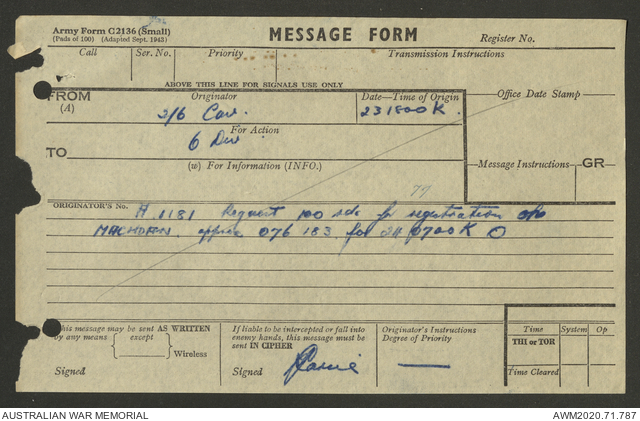 Army Form C2136 (Small)
(Pads of 100) (Adapted Sept. 1943)
MESSAGE FORM
Register No.
Call
Ser. No.
Priority
Transmission Instructions
ABOVE THIS LINE FOR SIGNALS USE ONLY
FROM
(A)
Originator
2/6 Cav.
Date—Time of Origin
231800K.
Office Date Stamp
For Action
TO
6 Div
(w) For Information (INFO.)
Message Instructions
GR
77
ORIGINATOR'S No.
A 1181 Request 100 rds for registration
approx 076 183 for 24 0700K O
This message may be sent AS WRITTEN
by any means except
Wireless
Signed
If liable to be intercepted or fall into
enemy hands, this message must be
sent IN CIPHER
Signed
Originator's Instructions
Degree of Priority
—
Time
System
Op
THI or TOR
Time Cleared
AUSTRALIAN WAR MEMORIAL
AWM2020.71.787